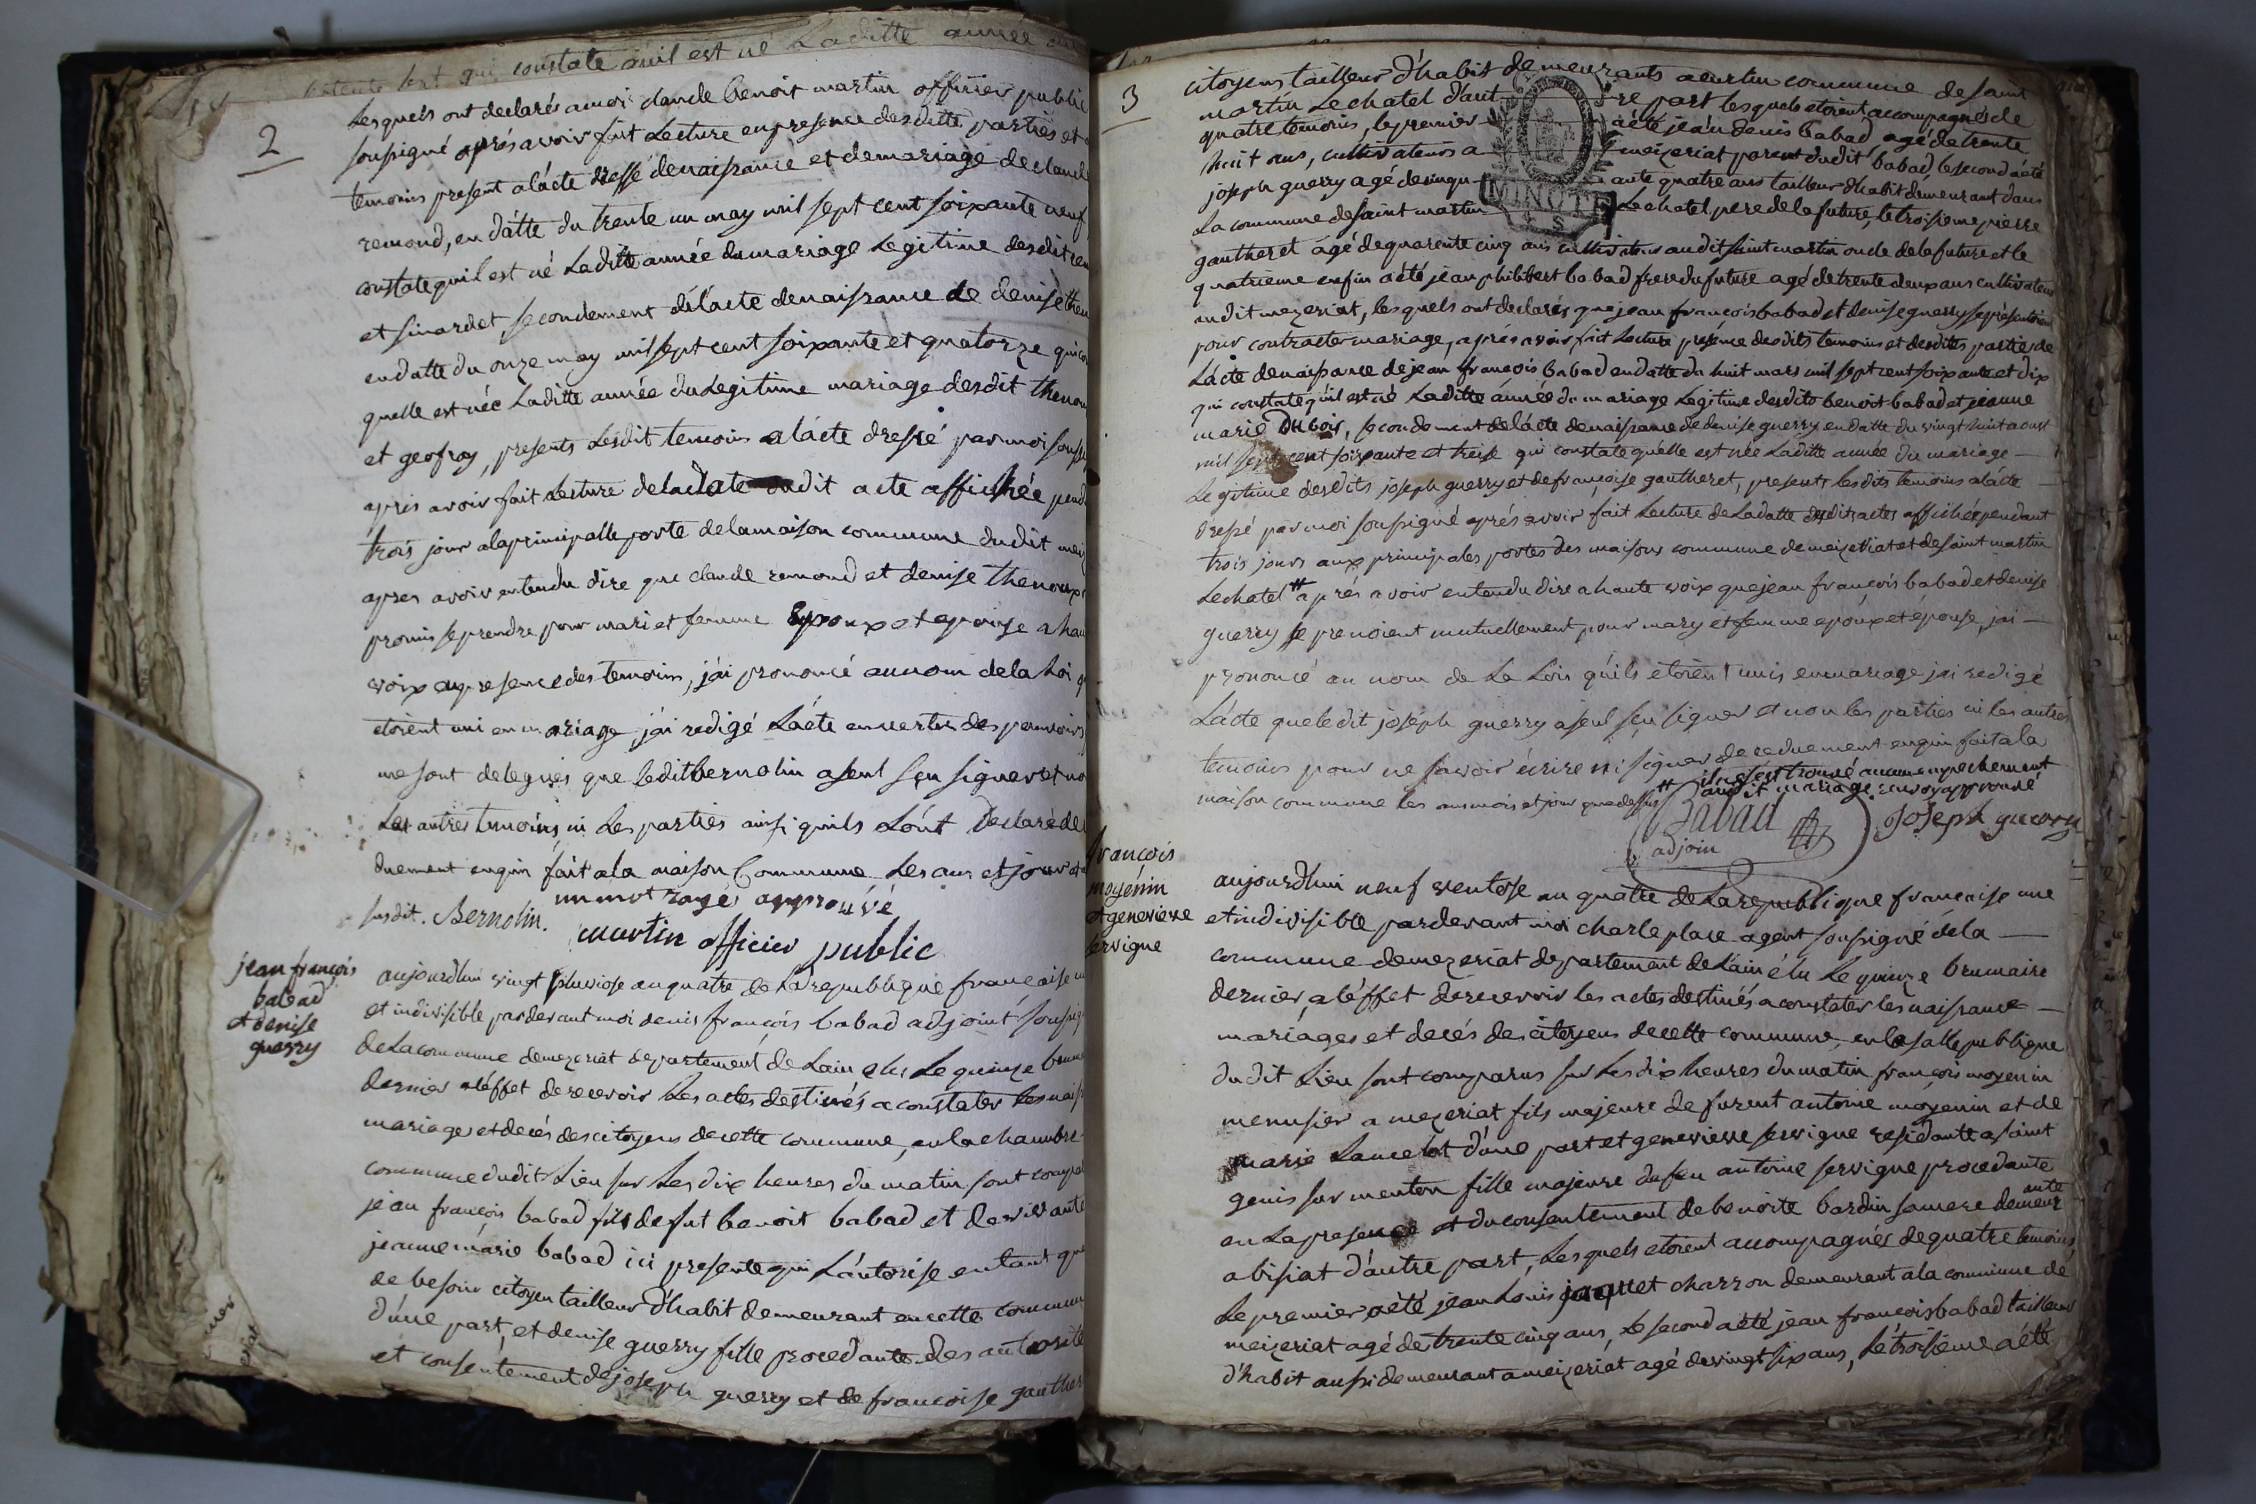 constate quil est né Laditte année du
2
Lesquels ont declarés a moi claude benoit martin officier public
soussigné aprés avoir fait Lecture en presence desditte parties et
temoins present a lácte dressé de naissance et de mariage de claude
remond, en dátte du trente un may mil sept cent soixante neuf
constate quil est né Laditte année du mariage Legitime desdit
et sinardet, secondement dé lácte de naissance de denise
en datte du onze may mil sept cent soixante et quatorze qui
quelle est née Laditte année du Legitime mariage desdit thenou
et geofroy, presents Lesdit temoins a lácte dressé par moi
apris avoir fait Lecture de la date dudit acte affichée
trois jour a la principalle porte de la maison commune dudit
apres avoir entendu dire que claude remond et denise thenoux
promis se prendre pour mari et femme Epoux et epouse a
voix en presence des temoins, j'ai prononcé au nom de la Loi
etoient uni en mariage j'ai redigé Lácte en vertu des pouvoirs
me sont delegués que ledit bernolin a seul sçu signer et
Les autres temoins ni Les parties ainsi quils Lónt Declaré de
duement enquis fait a la maison Commune Les ans et jour et
susdit. Bernolin. un mot rayé approuvé
martin officier public
jean françois
babad
et denise
guerry
aujourdhui vingt pluviose an quatre de La republique françaises
et indivisible pardevant moi denis françois babad adjoint
de La commune de mezeriat departement de Lain elu Le quinze
dernier a léffet de recevoir Les actes destinés a constater Les
mariages et decés des citoyens de cette commune, en la chambre
commune dudit Lieu sur Les dix heures du matin sont
jean françois babad fils de fut benoit babad et de vivante
jeanne marie babad ici presente qui Láutorise en tant
de besoin citoyen tailleur d'habit demeurant en cette
d'une part, et denise guerry fille procedante des autorité
et consentement de joseph guerry et de francoise
3
citoyens tailleur d'habit demeurants a commune de saint
martin Le chatel d'aut re part lesquels etoient accompagnés de
quatre temoins, le premier a été jeán denis babad agé de trente
huit ans, cultivateur a meizeriat parent dudit babad, le second a été
joseph guerry agé de ante quatre ans tailleur d'habit demeurant dans
La commune de saint martin Le chatel pere de la future, le troisieme pierre
gautheret agé de quarente cinq ans cultivateur audit saint martin oncle de la future et le
quatrieme enfin a été jean philibert babad frere du future agé de trente deux ans cultivateur
audit mezeriat, lesquels ont declarés que jean françois babad et denise guerry
pour contracter mariage, aprés avoir fait Lecture présence desdits temoins et desdites parties de
Lácte de naissance de jean françois babad en datte du huit mars mil sept cent soixante et dix
qui constate quil est né Laditte année du mariage Legitime desdits benoit babad et jeanne
marie Dubois, secondement dé lácte de naissance de denise guerry en datte du vingt huit aoust
mil sept cent soixante et treise qui constate quélle est née Laditte année du mariage
Legitime desdits joseph guerry et de françoise gautheret, presents lesdits temoins a lácte
dressé par moi soussigné aprés avoir fait Lecture de La datte desdits actes affichée pendant
trois jours aux principales portes des maisons commune de meizeriat et de saint martin
Le chatel # aprés avoir entendu dire a haute voix que jean françois babad et denise
guerry se prenoient mutuellement pour mary et femme epoux et épouse, jai
prononcé au nom de La Lois quils etoient unis en mariage j'ai redigé
Lácte que ledit joséph guerry a seul sçu signer et non les parties ni les autres
temoins pour ne savoir écrire ni signer de ce duement enquis fait a la
maison commune les ans mois et jour que dessus # il ne s'est trouvé aucun empechement
audit mariage. renvoy approuvé
Babad
adjoin
Joseph guerry
françois
moyénin
et genevieve
servigne
aujourdhui neuf ventose an quatre de La republique française une
et indivisible pardevant moi charle place agent soussigné dé la
commune de mezeriat departement de Lain élu Le quinze brumaire
dernier, a léffet de recevoir les actes destinés a constater les naissance
mariages et decés des citoyens de cette commune, en la salle publique
dudit Lieu sont comparus sur Les dix heures du matin françois moyenin
menusier a mezeriat, fils majeure de furent antoine moyenin et de
marie Lancelot d'une part et genevieve servigne residante a saint
genis sur menton fille majeure de feu antoine servigne procedante
en La presence et du consentement de benoite bardin sa mere demeur
ante
a bisiat d'autre part, Lesquels etoient accompagnés de quatre temoins,
Le premier a été jean Louis jaquet charron demeurant a la commune de
meizeriat agé de trente cinq ans, Le second a été jean françois babad tailleur
d'habit aussi demeurant a meizeriat agé de vingt six ans, Le troisieme a été